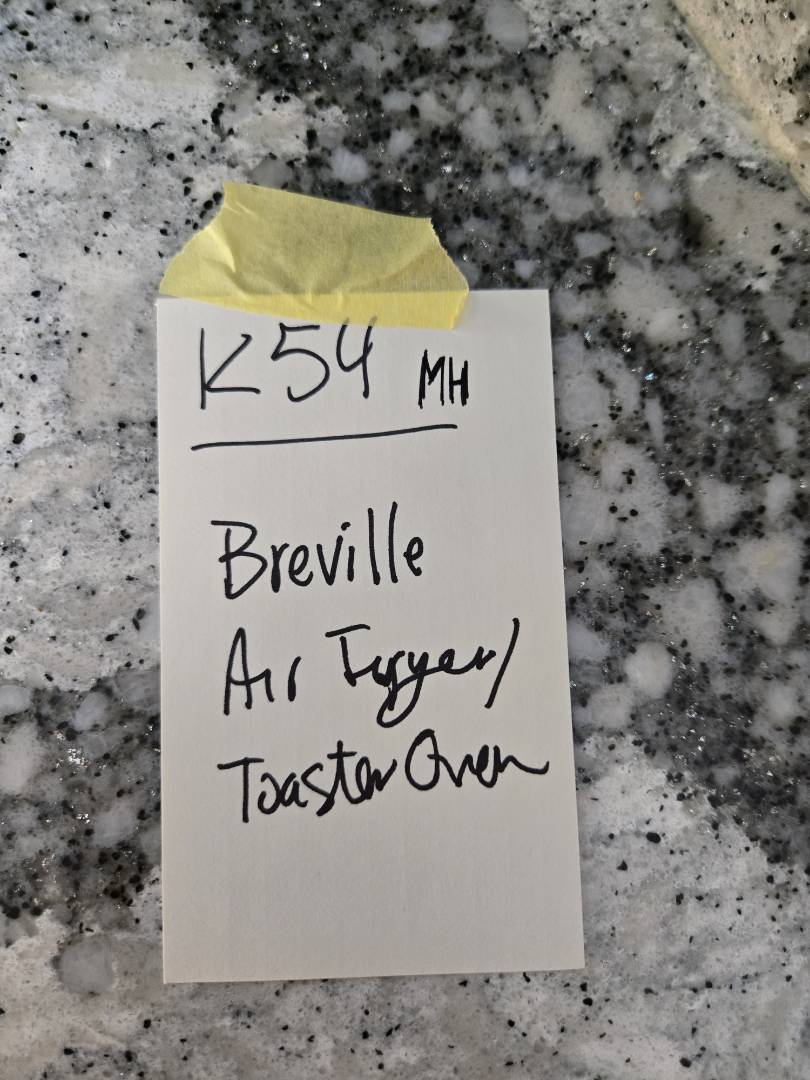 K54 MH
Breville
Air Fryer/
Toaster Oven